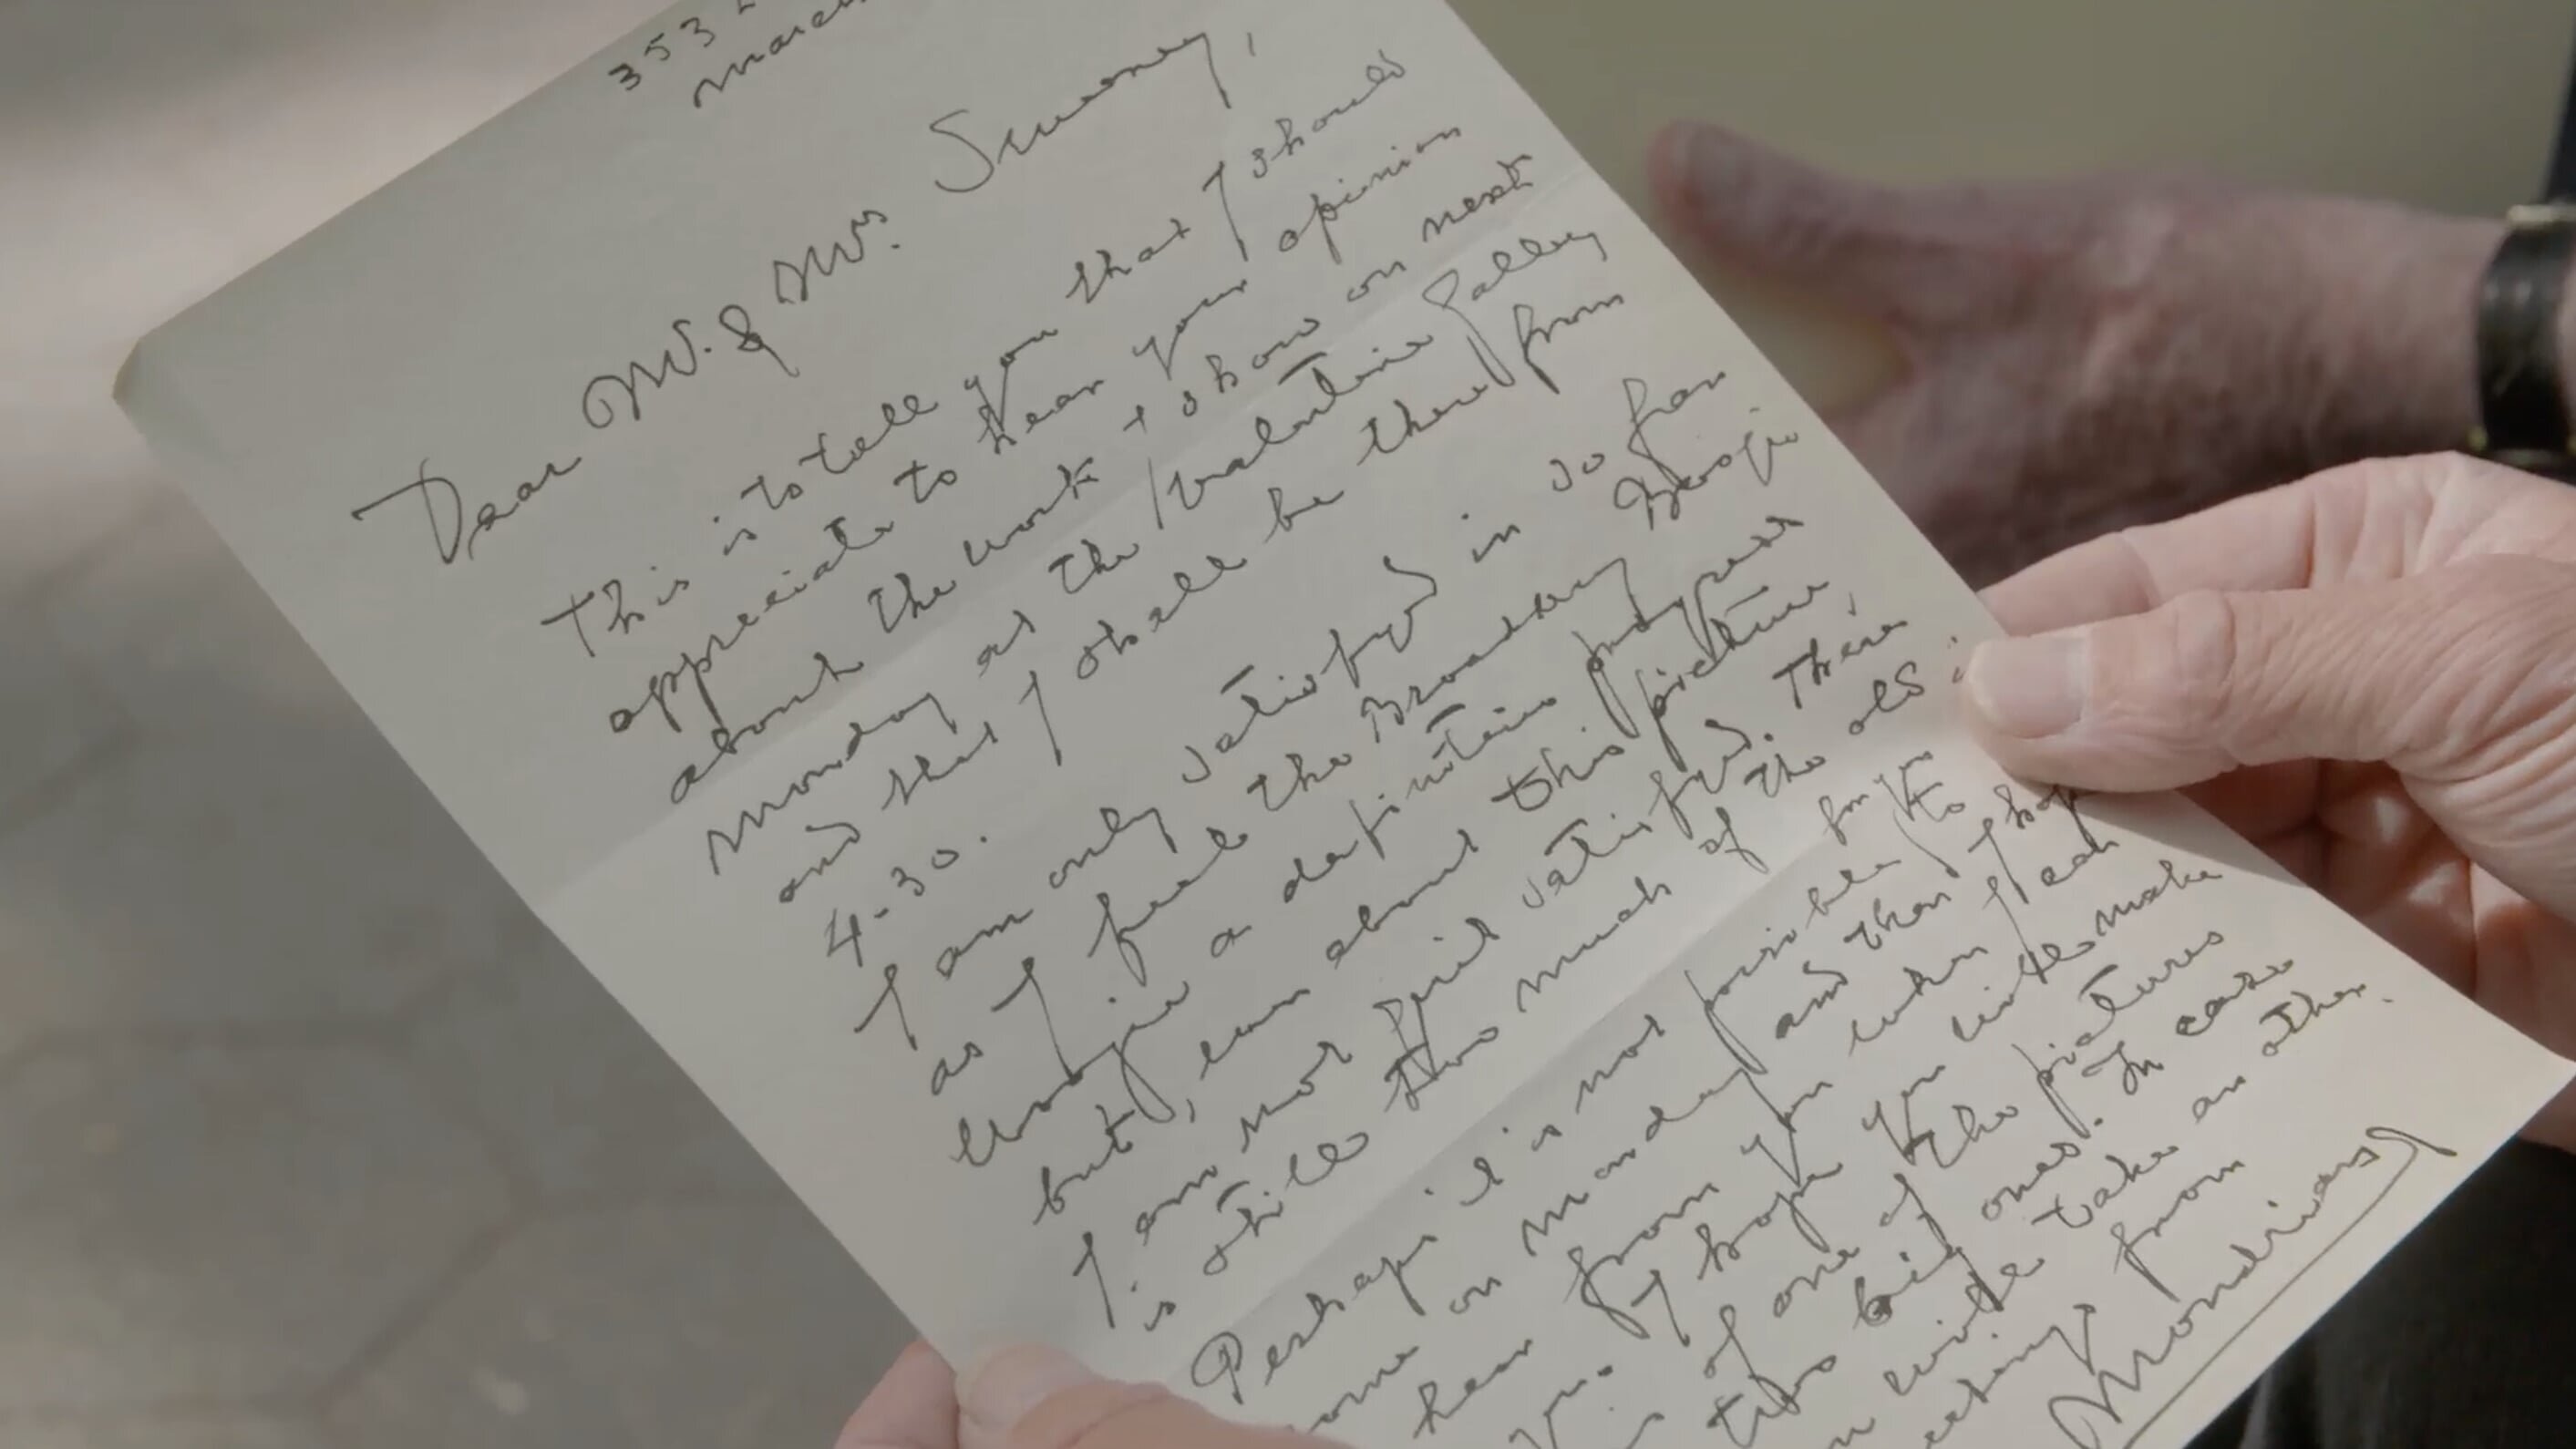 353
March
Dear Mr. & Mrs. Sweeney,
This is to tell you that I should
appreciate to hear your opinion
about the work I show on next
monday at the Valentine Gallery
and that I shall be there from
4-30.
I am only satisfyed in so far
as I feel the Broadway Boogie
Woogie a definitive progress
but, even about this picture,
I am not quit satisfyed. There
is still two much of the old
Perhaps it is not possible for you to
come on Monday and then I hope
hear from you when I can
you. I hope you will make
of one of the pictures
two big ones. In case
will take an other.
from
Mondrian